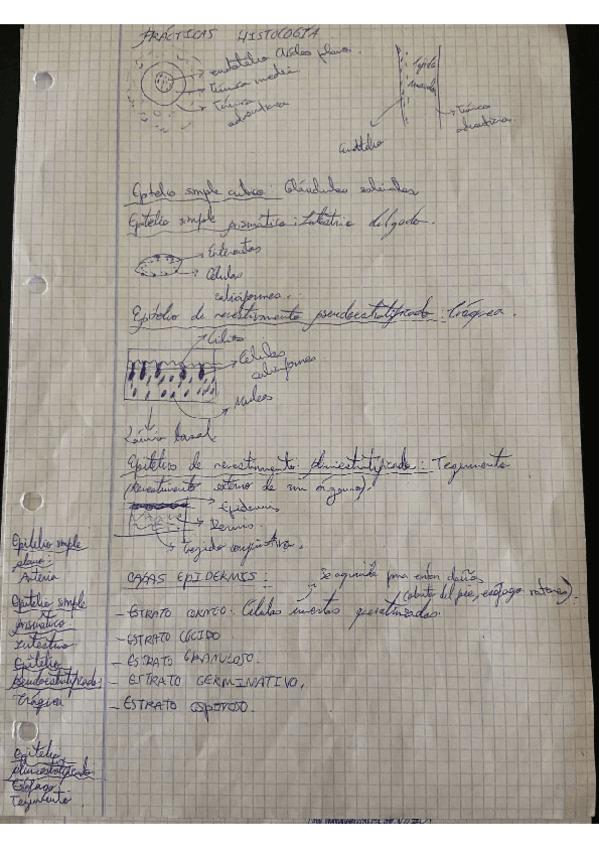 PRÁCTICAS HISTOLOGÍA
endotelio (Núcleo plano
túnica media
túnica adventicia
tejido
muscular
túnica
adventicia
Endotelio
Epitelio simple cúbico: Glándulas salivales
Epitelio simple prismático: Intestino delgado.
Enterocitos
Células
caliciformes.
Epitelio de revestimiento pseudoestratificado: tráquea.
Cilios
Células
caliciformes
Núcleos
Lámina basal.
Epitelio de revestimiento pluriestratificado: Tegumento
(Revestimiento externo de un órgano).
Epidermis
Dermis
tejido conjuntivo.
CAPAS EPIDERMIS:
Se engrosa para evitar daños
(planta del pie, esófago ratones).
- ESTRATO CÓRNEO: Células muertas queratinizadas.
- ESTRATO LÚCIDO
- ESTRATO GRANULOSO.
- ESTRATO GERMINATIVO.
- ESTRATO ESPINOSO.
Epitelio simple
plano:
Arteria
Epitelio simple
prismático
Intestino
Epitelio
pseudoestratificado:
Tráquea
Epitelio
pluriestratificado
Esófago
Tegumento